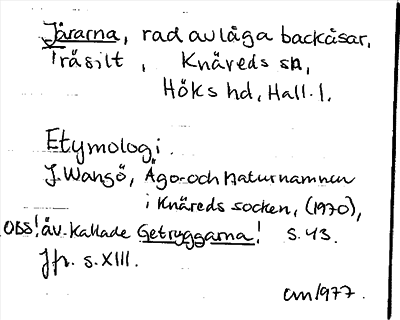 Jårarna, rad av låga backåsar,
Tråsilt, Knäreds sn,
Höks hd, Hall. l.
Etymologi.
J. Wansö, Ägo- och Naturnamnen
i Knäreds socken, (1970),
OBS! äv. kallade Getryggarna! s. 43.
Jfr. s. XIII.
am 1977.